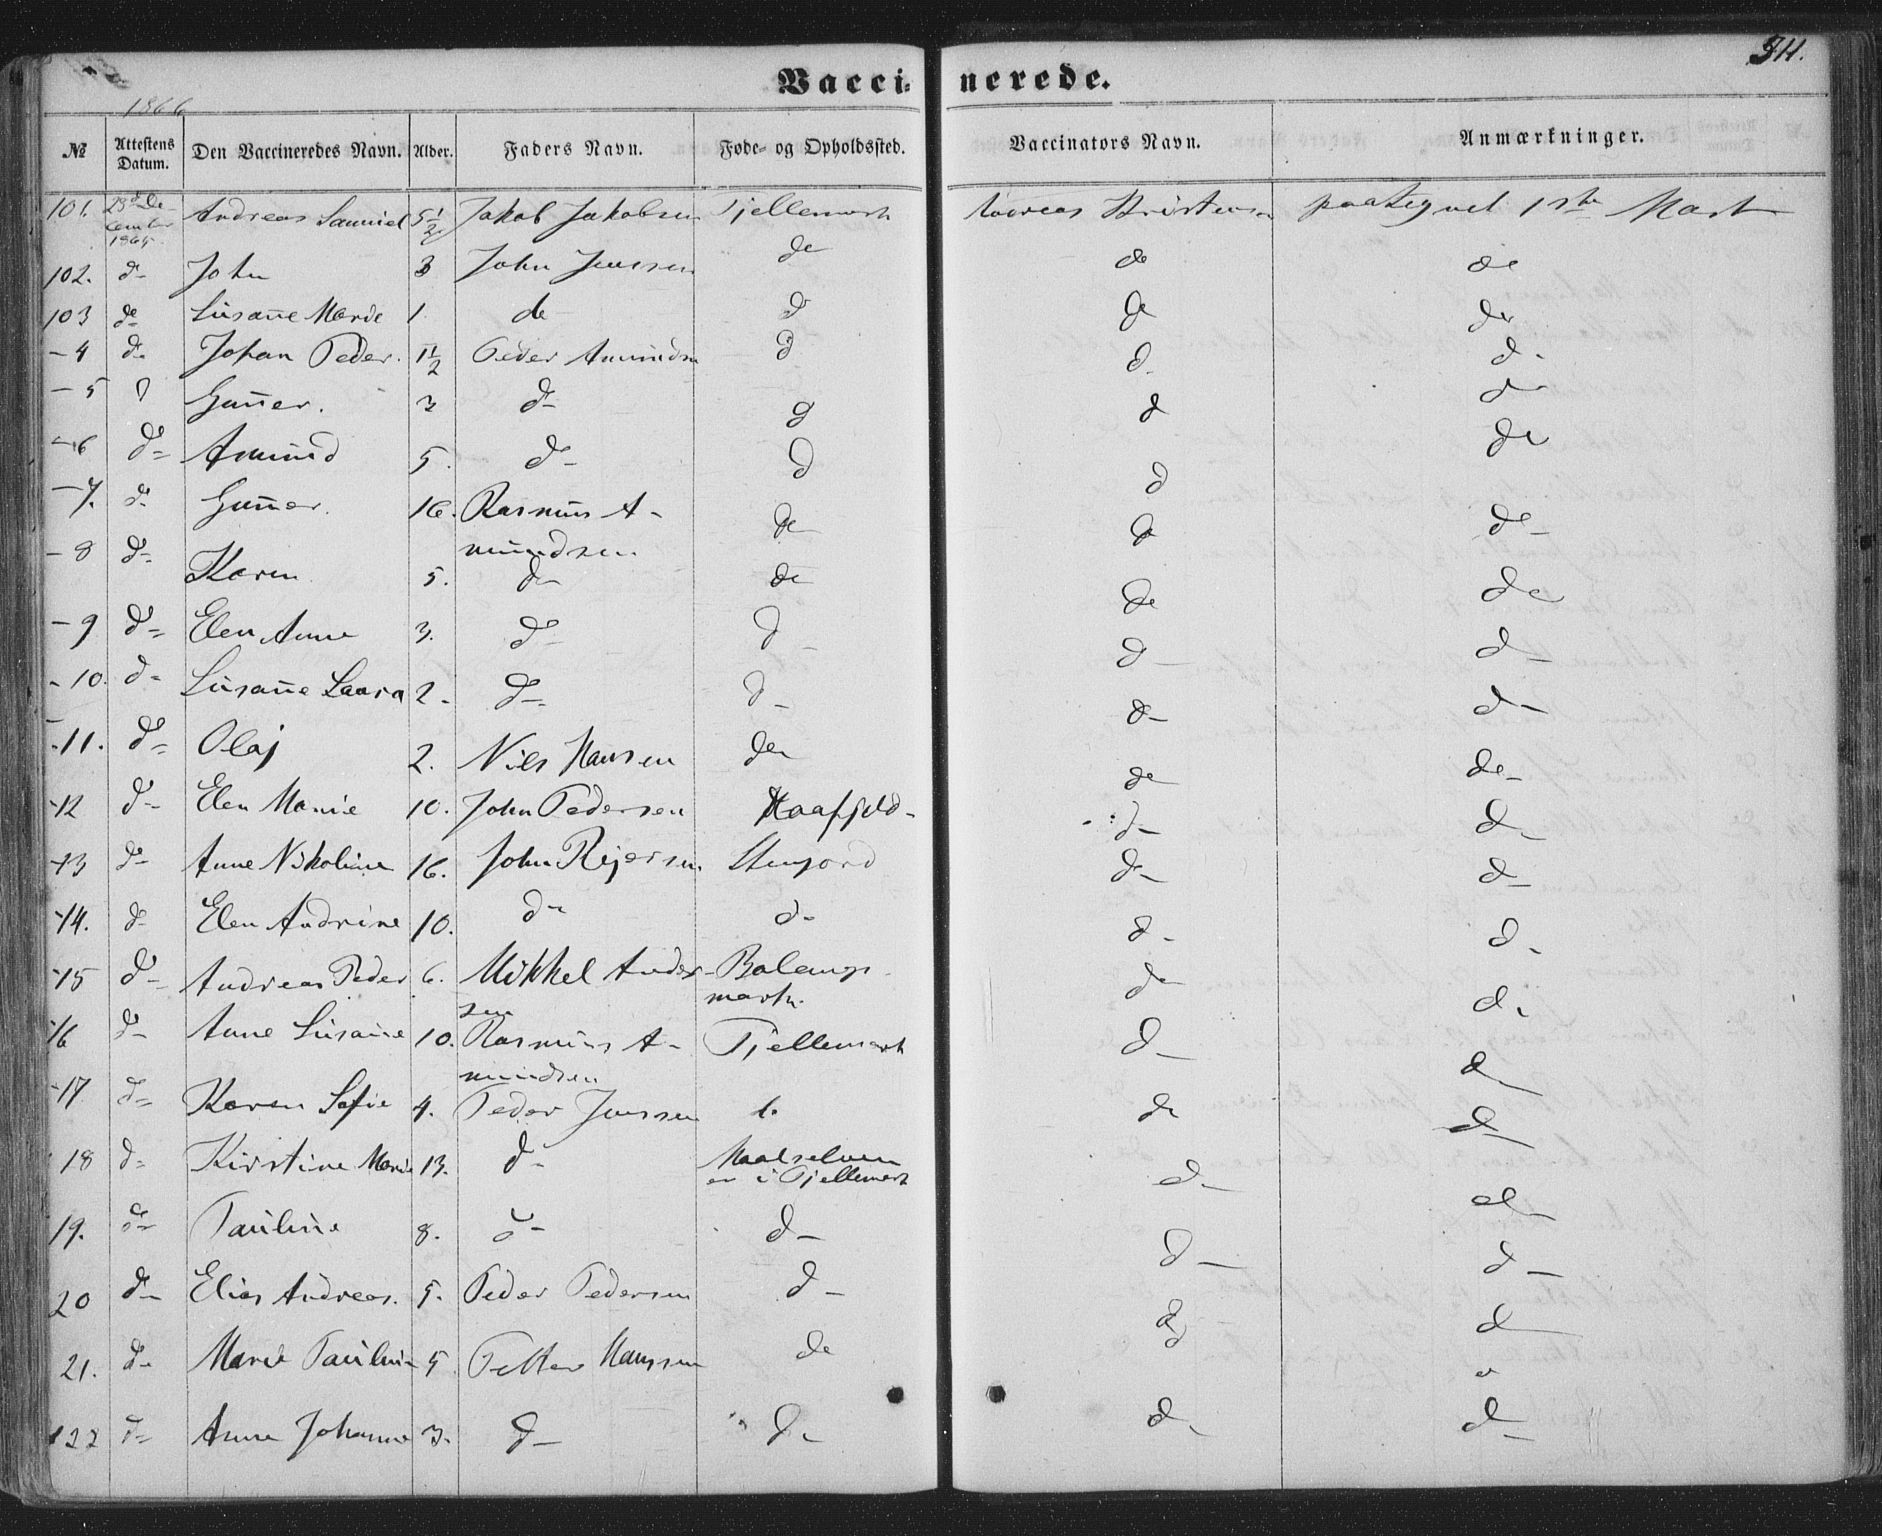 Vaccinerede.
311.
1866
№ Attestens Datum. Den Vaccineredes Navn. Alder. Faders Navn. Føde- og Opholdssted. Vaccinators Navn. Anmærkninger.
101. 23d De-cember 1865. Andreas Samuel 5½ Jakob Jakobsen Fjellemark Kristensen paategnet 1ste Mart
102. d- John 3 John Jenssen do do do
103 do Susan̄e Marie 1. do d do do
-4 d- Johan Peder. 1½ Peder Amundsen d d d-
-5 d Gun̄er. 3 d- d d d-
-6 d- Amund 5. d- d d do
-7. d- Gun̄er. 16. Rasmus A-mundsen do d d-
-8 d- Karen 5. do do do do
-9 d- Elen Anne 3. d- d- d- d-
-10. d- Susan̄e Laura 2- d- d- d- d-
-11. d- Olaf 2. Nils Hansen do do do-
-12 d- Elen Marie 10. John Pedersen Haafjeld- d- d-
-13 d- Anne Nikoline 16. John Rejersen Stenjord d- d-
-14. d- Elen Andrine 10. d- d- d- d-
-15 d- Andreas Peder 6. Mikkel Ander-sen Balangs-mark. do d-
-16 d- Anne Susan̄e 10. Rasmus A-mundsen Fjellemark d- d-
-17 d- Karen Sofie 4. Peder Jenssen d- do d-
18 d- Kirstine Marie 13. d- Maalselven er i Fjellemark d- d-
19. d- Pauline 8. d- d- d- d-
20 d- Elias Andreas. 5. Peder Pedersen d- d d-
21. d- Marie Pauline 5 Petter Hanssen do d- d
122 d- Anne Johanne 3. d- d- d- d-